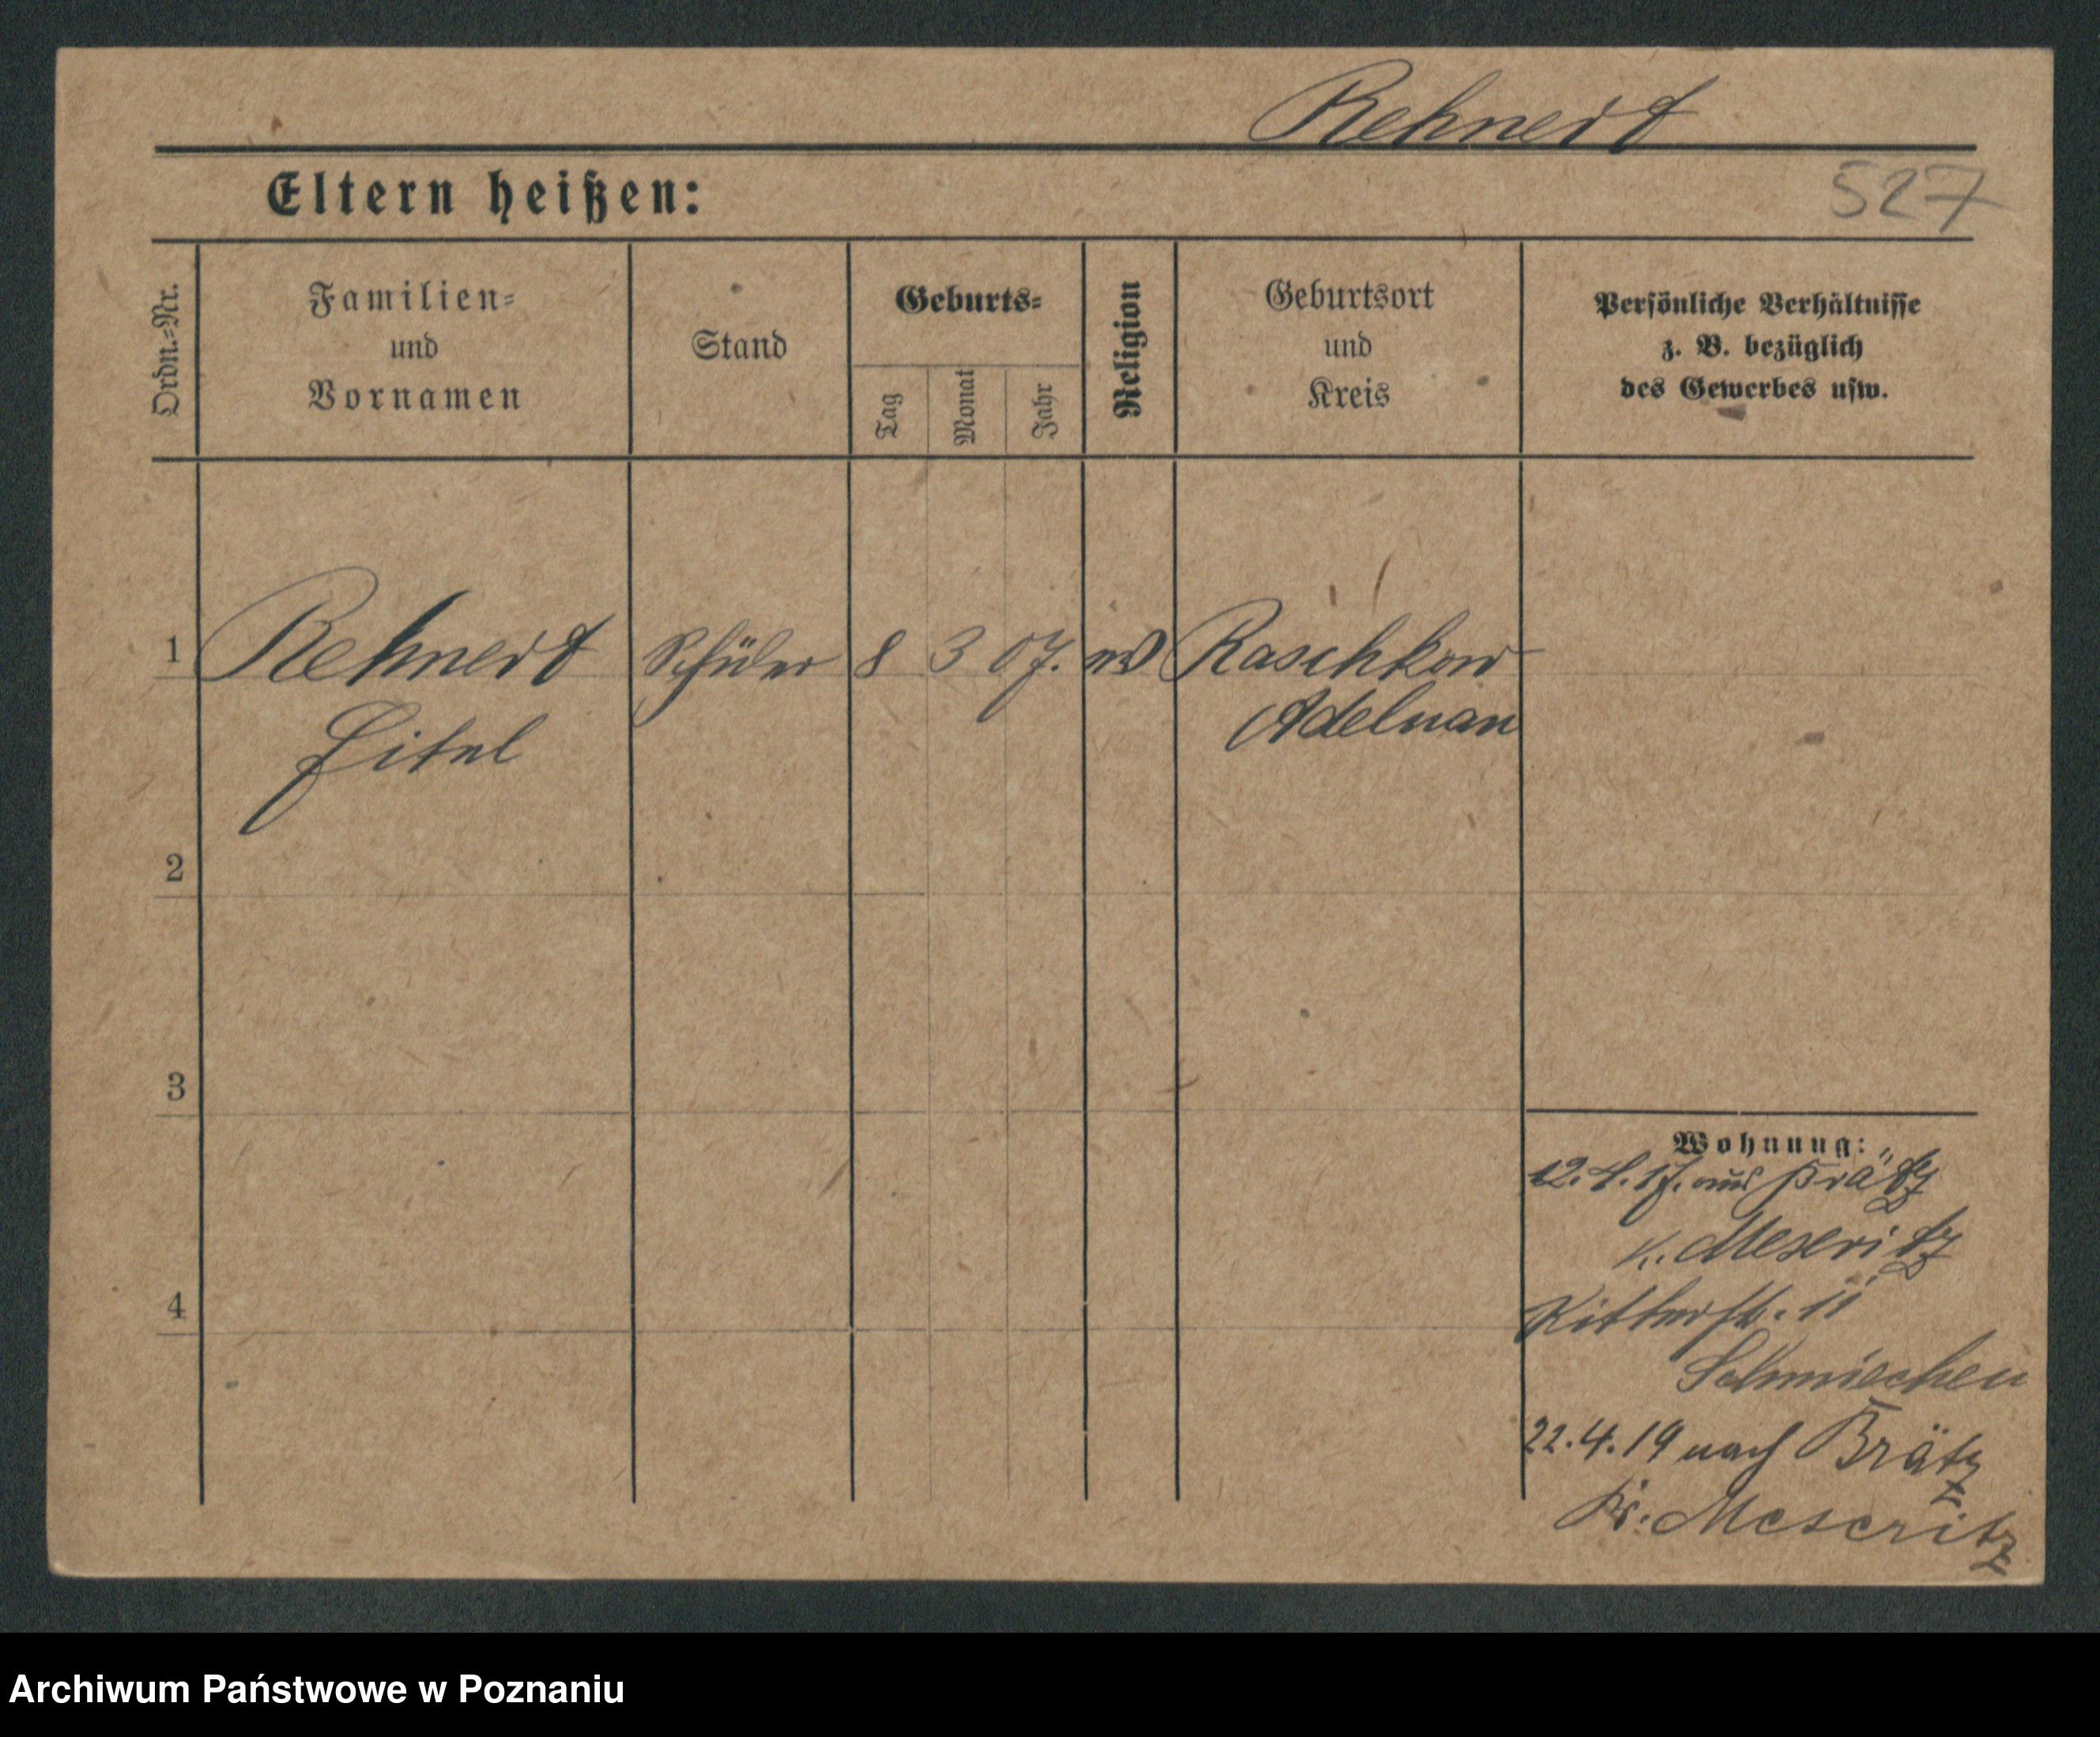 Rehnert
Eltern heißen:
527
Ordn.-Nr.
Familien-
und
Vornamen
Stand
Geburts-
Tag
Monat
Jahr
Religion
Geburtsort
und
Kreis
Persönliche Verhältnisse
z. B. bezüglich
des Gewerbes usw.
1 Rehnert Schüler 8 3 07. Raschkow
Eitel Adelnau
2
3
4
Wohnung:
12.4.17. aus Brätz
K. Meseritz
Ritterstr. 11
Schmiechen
22.4.19 nach Brätz
Kr. Meseritz
Archiwum Państwowe w Poznaniu